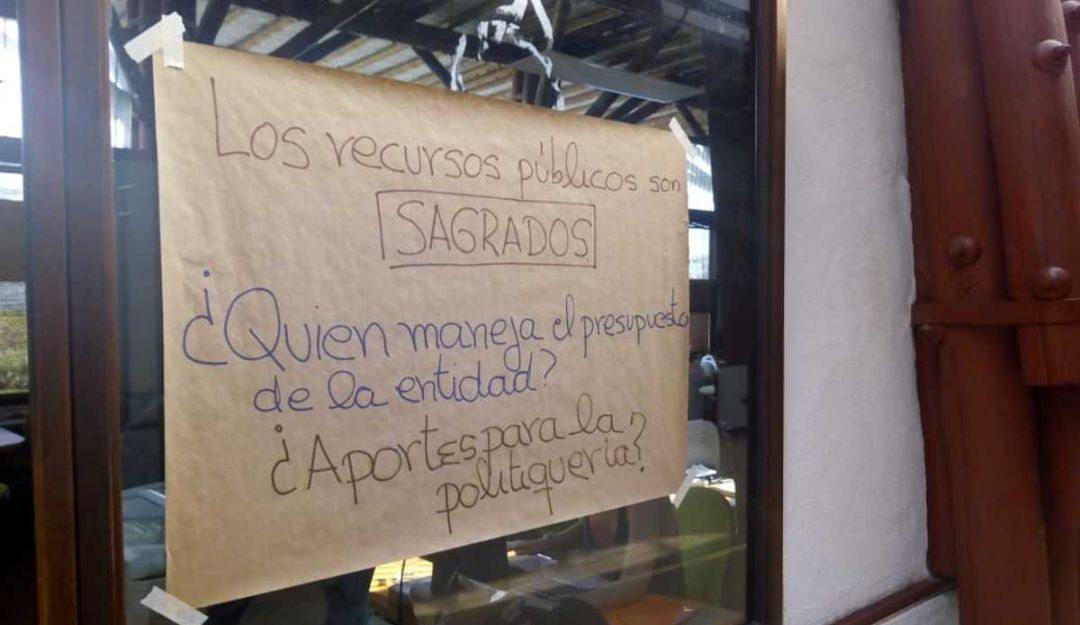 Los recursos públicos son
SAGRADOS
¿Quien maneja el presupuesto
de la entidad?
¿Aportes para la
politiqueria?